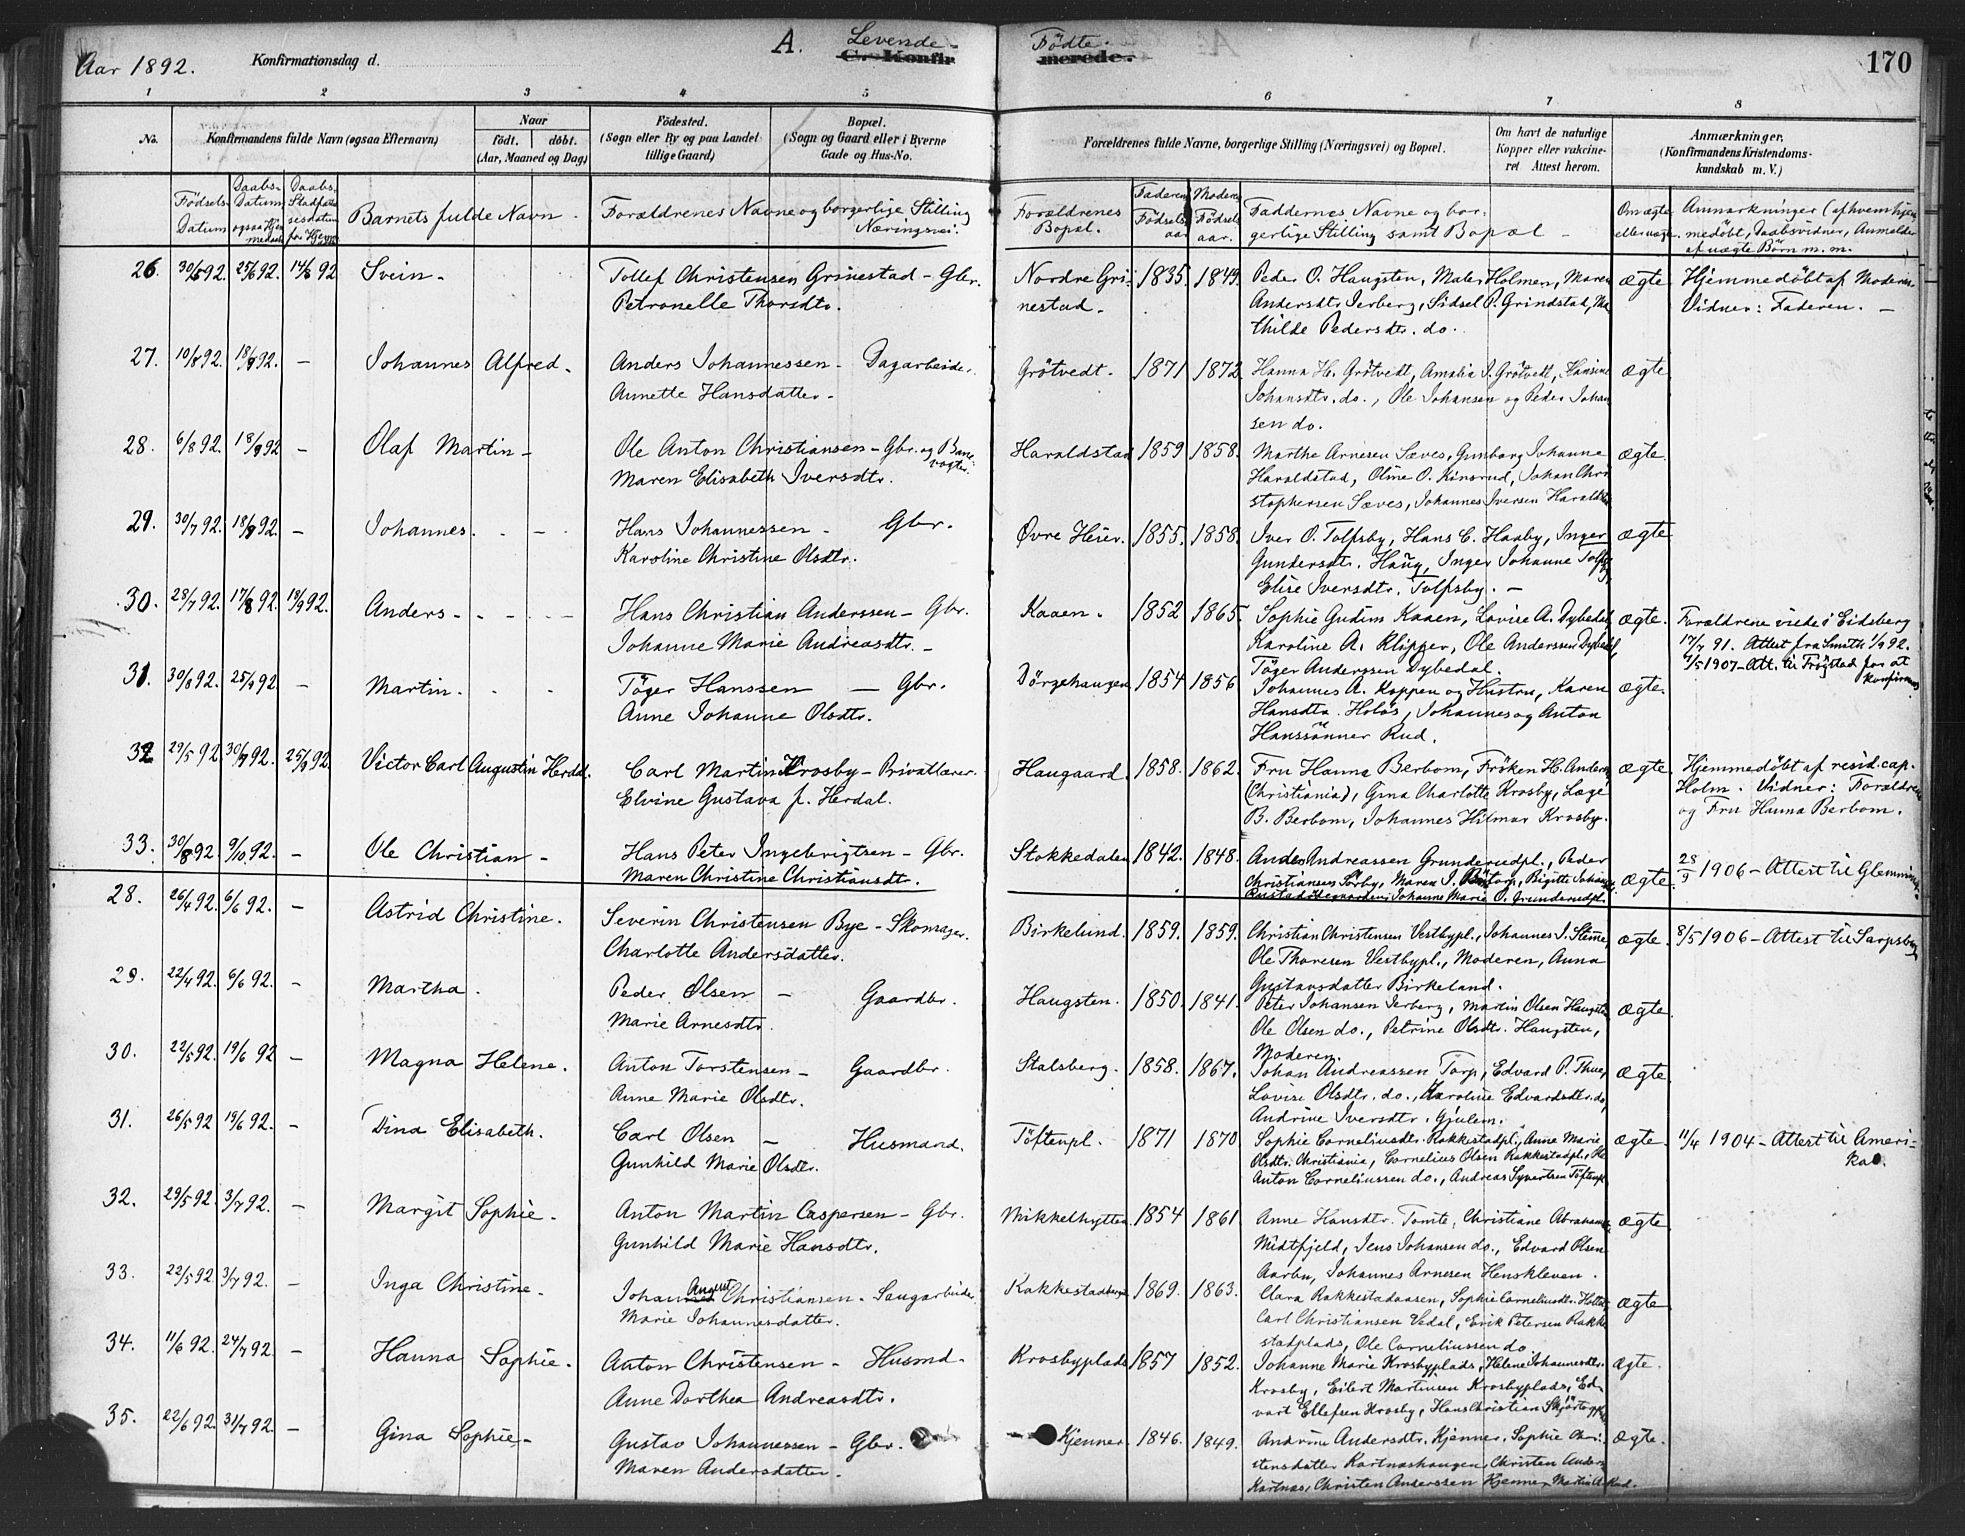 Aar 1892. Konfirmationsdag d. A. Levende- Fødte. 170
C. Konfirmerede.
1 2 3 4 5 6 7 8
No. Konfirmandens fulde Navn (ogsaa Efternavn) Naar født. døbt. (Aar, Maaned og Dag) Fødested. (Sogn eller By og paa Landet tillige Gaard) Bopæl. (Sogn og Gaard eller i Byerne Gade og Hus-No. Forældrenes fulde Navne, borgerlige Stilling (Næringsvei) og Bopæl. Om havt de naturlige Kopper eller vakcineret Attest herom. Anmærkninger, (Konfirmandens Kristendomskundskab m. V.)
Fødsels Datum Daabs- Datum ogsaa Hjemmedaab Daabs Stadfæstelsesdatum for Hjemmed. Barnets fulde Navn. Forældrenes Navne og borgerlige Stilling Næringsvei. Forældrenes Bopæl. Faderens Fødselsaar Moderens Fødselsaar. Faddernes Navne og borgerlige Stilling samt Bopæl - Om ægte eller uægte Anmærkninger (af hvem hjemmedøbt, Daabsvidner, Anmelder af uægte Børn m. m.
26 30/5 92. 25/6 92. 14/8 92 Svein - Tollef Christensen Grinestad - Gbr. Nordre Gri- 1835. 1849. Peder O. Haugsten, Maler Holmen, Maren ægte Hjemmedöbt af Moderen
Petronelle Thorsdtr. nestad. Andersdtr. Jerberg, Sidsel P. Grindstad, Ma Vidner: Faderen. -
thilde Pedersdtr. do.
27. 10/8 92. 18/9 92. - Johannes Alfred. Anders Johannessen - Dagarbeider. Grötvedt. 1871 1872 Hanna H. Grötvedt, Amalia J. Grötvedt, Hansine ægte
Annette Hansdatter. Johansdtr. do., Ole Johansen og Peder Johan
sen do.
28. 6/8 92. 18/9 92 - Olaf Martin - Ole Anton Christiansen - Gbr. og Bane- vogter. Haraldstad 1859 1858. Marthe Arnesen Sæves, Gunborg Johanne ægte
Maren Elisabeth Iversdtr. Haraldstad, Oline O. Kinsrud, Johan Chri
stophersen Sæves, Johannes Iversen Haraldsta
29. 30/7 92. 18/9 92. - Johannes. Hans Johannessen - Gbr. Øvre Heier. 1855. 1858. Iver O. Tolfsby, Hans C. Haaby, Inger ægte
Karoline Christine Olsdtr. Gundersdt. Haug, Inger Johanne Tolfsby
Elise Iversdtr. Tolfsby. -
30. 28/7 92. 17/8 92. 18/9 92. Anders - Hans Christian Anderssen - Gbr. Kaaen. 1852 1865. Sophie Gudim Kaaen, Lovise A. Dybedal, ægte. Forældrene viede i Eidsberg
Johanne Marie Andreasdtr. - Karoline A. Klipper, Ole Anderssen Dybedal 17/7 91. Attest fra Smith 1/9 92.
Töger Anderssen Dybedal. 7/5 1907 - Att. til Trögstad for at konfirmeres
31. 30/8 92. 25/9 92. - Martin. Töger Hanssen - Gbr. Dörjehaugen 1854 1856 Johannes A. Koppen og Hustru, Karen ægte.
Anne Johanne Olsdtr. Hansdtr. Holös, Johannes og Anton
Hanssönner Rud.
32 29/5 92. 30/7 92. 25/9 92. Victor Carl Augustin Herdal. Carl Martin Krosby - Privatlærer Haugaard. 1858. 1862. Fru Hanna Berbom, Fröken H. Andersen ægte. Hjemmedöbt af resid. cap.
Elvine Gustava f. Herdal. (Christiania), Gina Charlotte Krosby, Læge Holm. Vidner: Forældrene
B. Berbom, Johannes Hilmar Krosby. og Fru Hanna Berbom.
33. 30/8 92. 9/10 92. - Ole Christian - Hans Peter Ingebrigtsen - Gbr. Stokkedalen 1842. 1848. Anders Andreassen Grunderudpl., Peder ægte. 28/9 1906 - Attest til Glemminge.
Maren Christine Christiansdtr. Christiansen Törby, Maren J. Böstorp, Birgitte Johans
Johanne Marie O. Grunderudpl.
28. 26/4 92. 6/6 92. - Astrid Christine. Severin Christensen Bye - Skomager. Birkelund. 1859. 1859. Christian Christensen Vestbypl., Johannes J. Stemme, ægte. 8/5 1906 - Attest til Sarpsborg
Charlotte Andersdatter. Ole Thoresen Vestbypl., Moderen, Anna
Gustavsdatter Birkeland.
29. 22/4 92. 6/6 92. - Martha. Peder Olsen - Gaardbr. Haugsten. 1850. 1841. Peter Johansen Jerberg, Martin Olsen Haugsten ægte.
Marie Arnesdtr. Ole Olsen do., Petrine Olsdtr. Haugsten,
Moderen.
30. 22/5 92. 19/6 92 - Magna Helene. Anton Torstensen - Gaardbr. Stalsberg. 1858. 1867. Johan Andreassen Torp, Edvard P. Thue, ægte.
Anne Marie Olsdtr. Lovise Olsdtr. do., Karoline Edvardsdtr. do,
Andrine Iversdtr. Gjulem.
31. 26/5 92 19/6 92. - Dina Elisabeth. Carl Olsen - Husmand. Töftenpl. 1871 1870 Sophie Corneliusdtr. Rakkestadpl., Anne Marie ægte. 11/4 1904 - Attest til Ameri-
Gunhild Marie Olsdtr. Olsdtr. Christiania, Cornelius Olsen Rakkestadpl., Ka.
Anton Corneliussen do., Andreas Syvertsen Töftenpl
32. 29/5 92. 3/7 92. - Margit Sophie. Anton Martin Caspersen - Gbr. Mikkelhytten. 1854 1861 Anne Hansdtr. Tomte, Christiane Abrahamse ægte
Gunhild Marie Hansdtr. Midtfjeld, Jens Johansen do., Edvard Olsen
Aarbu, Johannes Arnesen Henskleven.
33. 22/5 92. 3/7 92. - Inga Christine. Johan August Christiansen - Saugarbeider Rakkestadberget 1869. 1863. Clara Rakkestadaasen, Sophie Corneliusdtr. ægte
Marie Johannesdatter. Carl Christiansen Vedal, Erik Petersen Rakke
stadplads, Ole Corneliussen do
34. 11/6 92. 24/7 92. - Hanna Sophie. Anton Christensen - Husmd. Krosbyplads 1857 1852. Johanne Marie Krosbyplads, Helene Johannesdtr. ægte.
Anne Dorthea Andreasdtr. Krosby, Eilert Martinsen Krosbyplads, Ed
vart Ellefsen Krosby, Hans Christian
35. 22/6 92. 31/7 92. - Gina Sophie - Gustav Johannessen - Gbr. Kjenner. 1846. 1849. Andrine Andersdtr. Kjenner, Sophie Chri- ægte.
Maren Andersdatter. stensdatter Kartnæshaugen, Christen Anders
Kartnæs, Christen Anderssen Kjenner, Martin A. Rud.